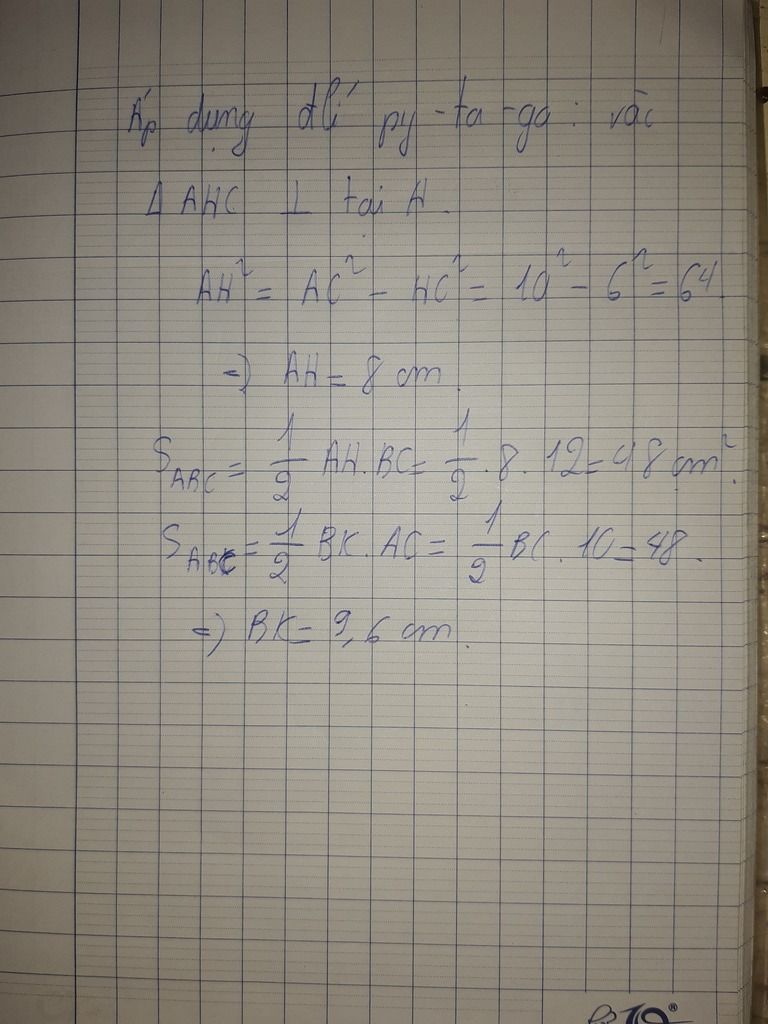 Áp dụng đlí py-ta-go: vào
Δ AHC ⊥ tại H.
AH² = AC² - HC² = 10² - 6² = 64
=) AH = 8 cm.
S_ABC = 1/2 AH. BC = 1/2 . 8 . 12 = 48 cm².
S_ABC = 1/2 BK. AC = 1/2 BC . 10 = 48.
=) BK = 9,6 cm.